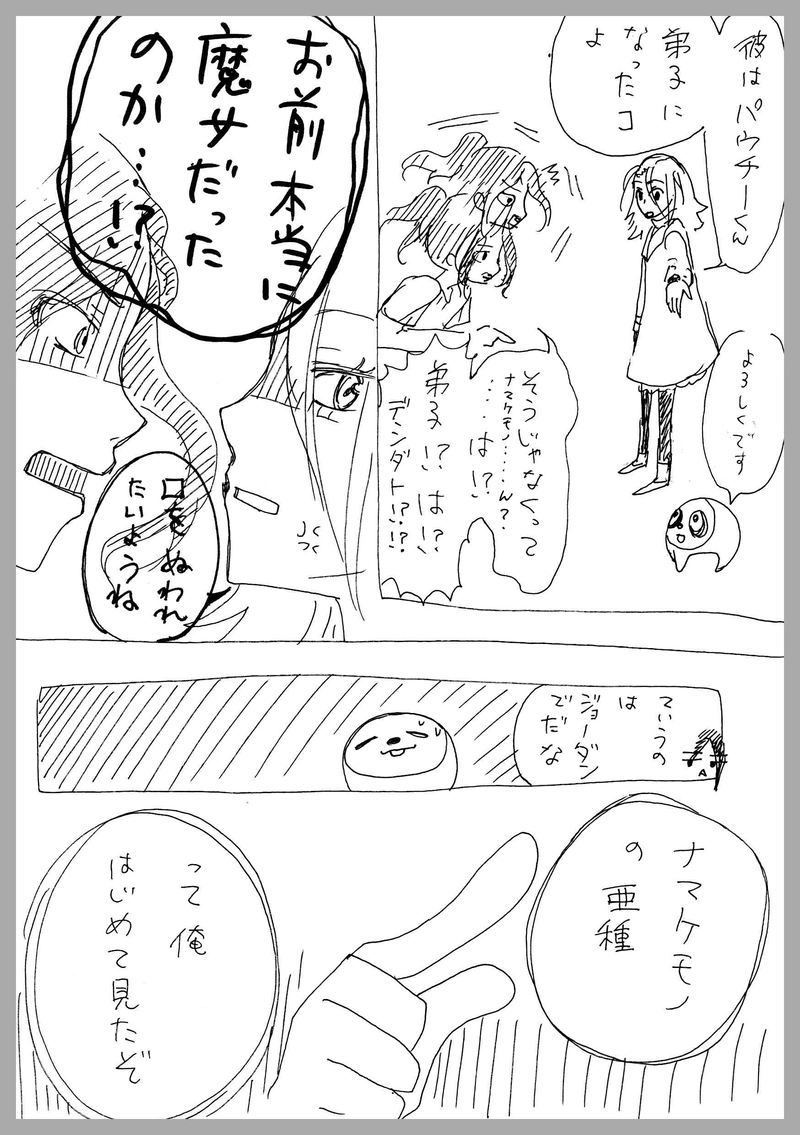 彼はパウチーくん
弟子に
なったコ
よ
よろしくです
そうじゃなくって
ナマケモノ……ん?
…は!?
弟子!?は!?
デンダト!?!?
お前本当に
魔女だった
のか…!?
口をぬわれ
たいようね
ていうの
は
ジョーダン
でだな
ナマケモノ
の亜種
って俺
はじめて見たぞ